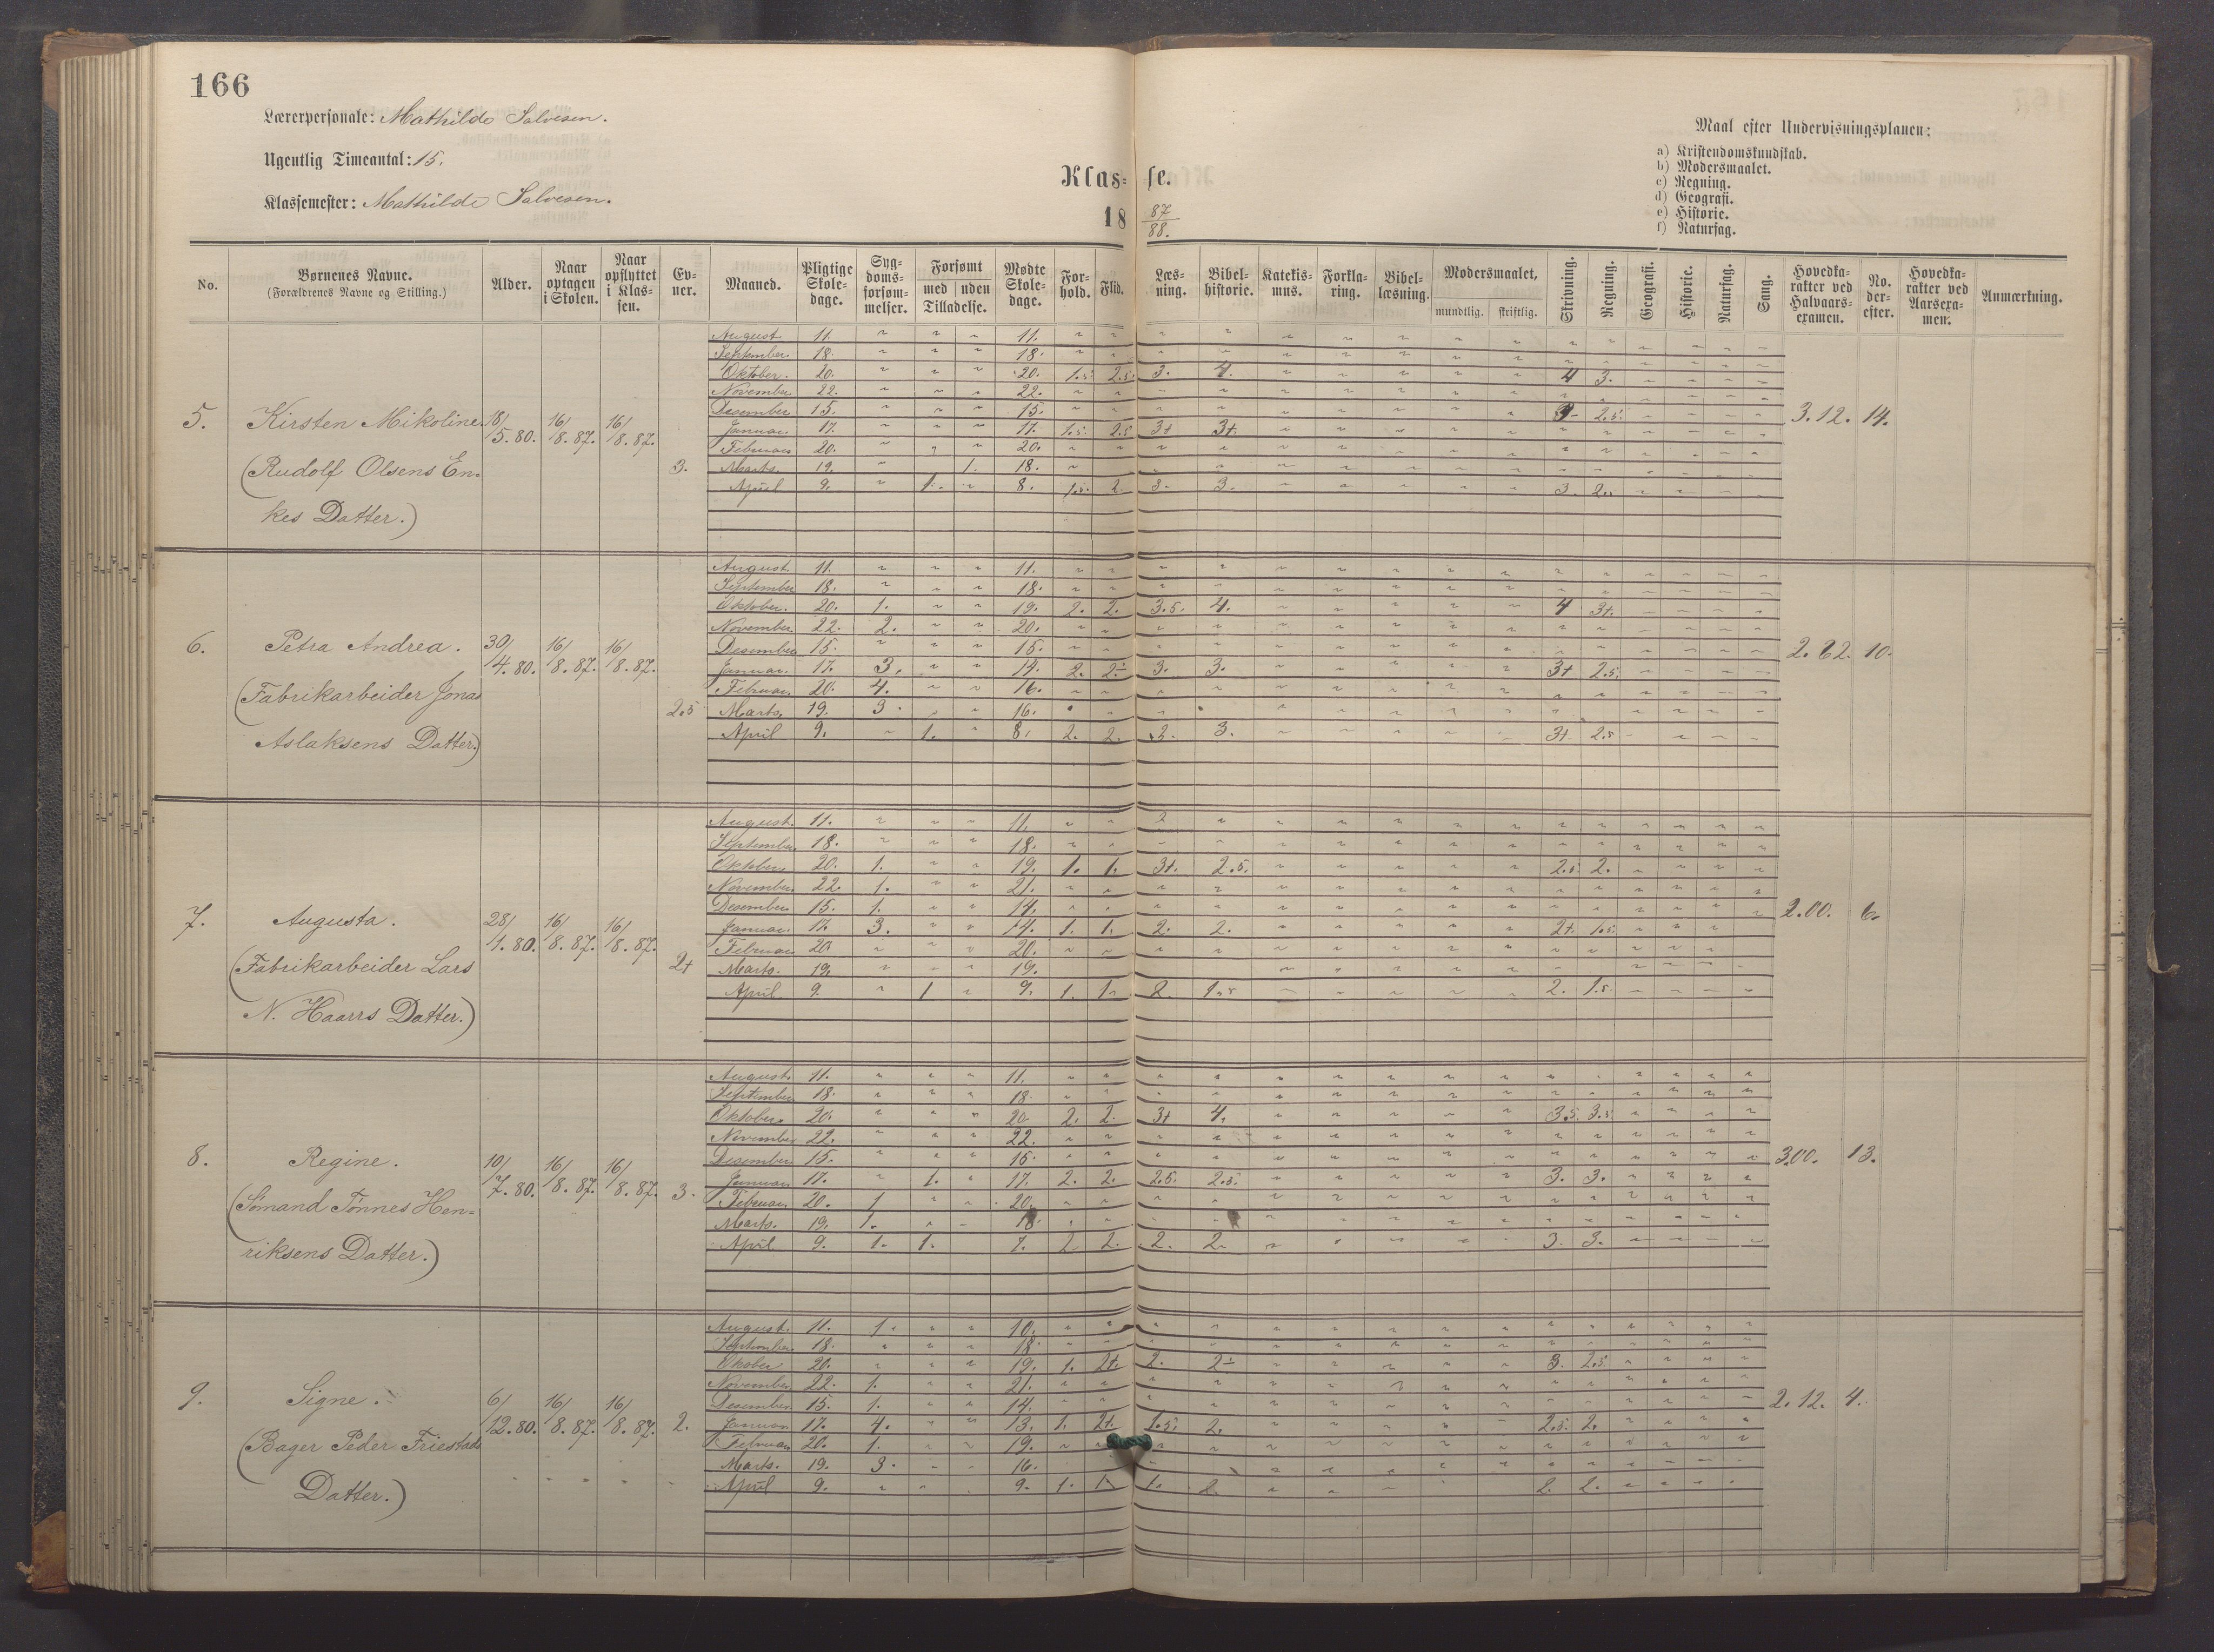 166
Lærerpersonale: Mathilde Salvesen.
Ugentlig Timeantal: 15.
Klassemester: Mathilde Salvesen.
Klasse.
18 87/88.
Maal efter Undervisningsplanen:
a) Kristendomskundskab.
b) Modersmaalet.
c) Regning.
d) Geografi.
e) Historie.
f) Naturfag.
No. Børnenes Navne. (Forældrenes Navne og Stilling.) Alder. Naar optagen i Skolen. Naar opflyttet i Klassen. Evner. Maaned. Pligtige Skoledage. Sygdomsforsømmelser. Forsømt med uden Tilladelse. Mødte Skoledage. Forhold. Flid. Læsning. Bibelhistorie. Katekismus. Forklaring. Bibellæsning. Modersmaalet, mundtlig. skriftlig. Skrivning. Regning. Geografi. Historie. Naturfag. Sang. Hovedkarakter ved Halvaarsexamen. No. derefter. Hovedkarakter ved Aarsexamen. Anmærkning.
5. Kirsten Mikoline. 18/5.80. 16/8.87. 16/8.87. 3. 3.12. 14.
(Rudolf Olsens En-
kes Datter.)
August 11. " " " 11.
September 18. " " " 18.
Oktober. 20. " " " 20. 1.5. 2.5. 3. 4. 4 3.
November 22. " " " 22.
Desember 15. " " " 15.
Januar. 17. " " " 17. 1.5. 2.5 3+ 3+. 2.5.
Februar 20. " " " 20.
Marts. 19. " 1. 18.
April 9. " 1. " 8. 1.5. 2 3. 3. 3.
6. Petra Andrea. 30/4.80. 16/8.87. 16/8.87. 2.5 2.62. 10.
(Fabrikarbeider Jonas
Aslaksens Datter.)
August 11. " " " 11.
September 18. " " " 18.
Oktober. 20. 1. " " 19. 2. 2. 3.5. 4. 4 3+.
November. 22. 2. " " 20.
Desember 15. " " " 15.
Januar. 17. 3. " " 14. 2. 2÷ 3. 3. 3+ 2.5.
Februar. 20. 4. " " 16.
Marts, 19. 3. " " 16.
April 9. " 1. " 8. 2. 2. 3. 3. 3+. 2.5
7. Augusta. 28/1.80. 16/8.87. 16/8.87. 2+ 2.00. 6.
(Fabrikarbeider Lars
N. Haarrs Datter.)
August. 11. " " " 11.
September. 18. " " " 18.
Oktober 20. 1. " " 19. 1. 1. 3+. 2.5. 2.5. 2.
November. 22. 1. " " 21.
Desember 15. 1. " " 14.
Januar. 17. 3. " " 14. 1. 1. 2. 2. 2+. 1.5.
Februar 20. " " " 20.
Marts. 19. " " " 19.
April. 9. " 1 " 9. 1. 1. 2. 1.5 2. 1.5.
8. Regine. 10/7.80. 16/8.87. 16/8.87. 3. 3.00. 13.
(Sømand Tønnes Hen-
riksens Datter.)
August. 11. " " " 11.
September 18. " " " 18.
Oktober. 20. " " " 20 2. 2. 3+ 4. 3.5. 3.5.
November 22. " " " 22.
Desember 15. " " " 15.
Januar 17. " 1. " 17. 2. 2. 2.5. 2.5. 3. 3.
Februar. 20. 1 " " 20.
Marts. 19. 1. " " 18.
April 9. 1. 1. 7. 2 2. 2. 2. 3. 3.
9. Signe. 6/12.80. 16/8.87. 16/8.87. 2. 2.12. 4.
(Bager Peder Friestads
Datter.)
August. 11. 1. " " 10.
September. 18. " " " 18.
Okober 20. " " " 19. 1. 2+. 2. 2÷ 3. 2.5.
November. 22. 1. " " 21.
Desember 15. 1. " " 14.
Januar 17. 4. " " 13. 1. 2+. 1.5. 2. 2.5. 2.
Februar 20. 1. " " 19.
Marts. 19. 3. " " 16.
April 9. " " 9. 1. 1. 2 2. 2.